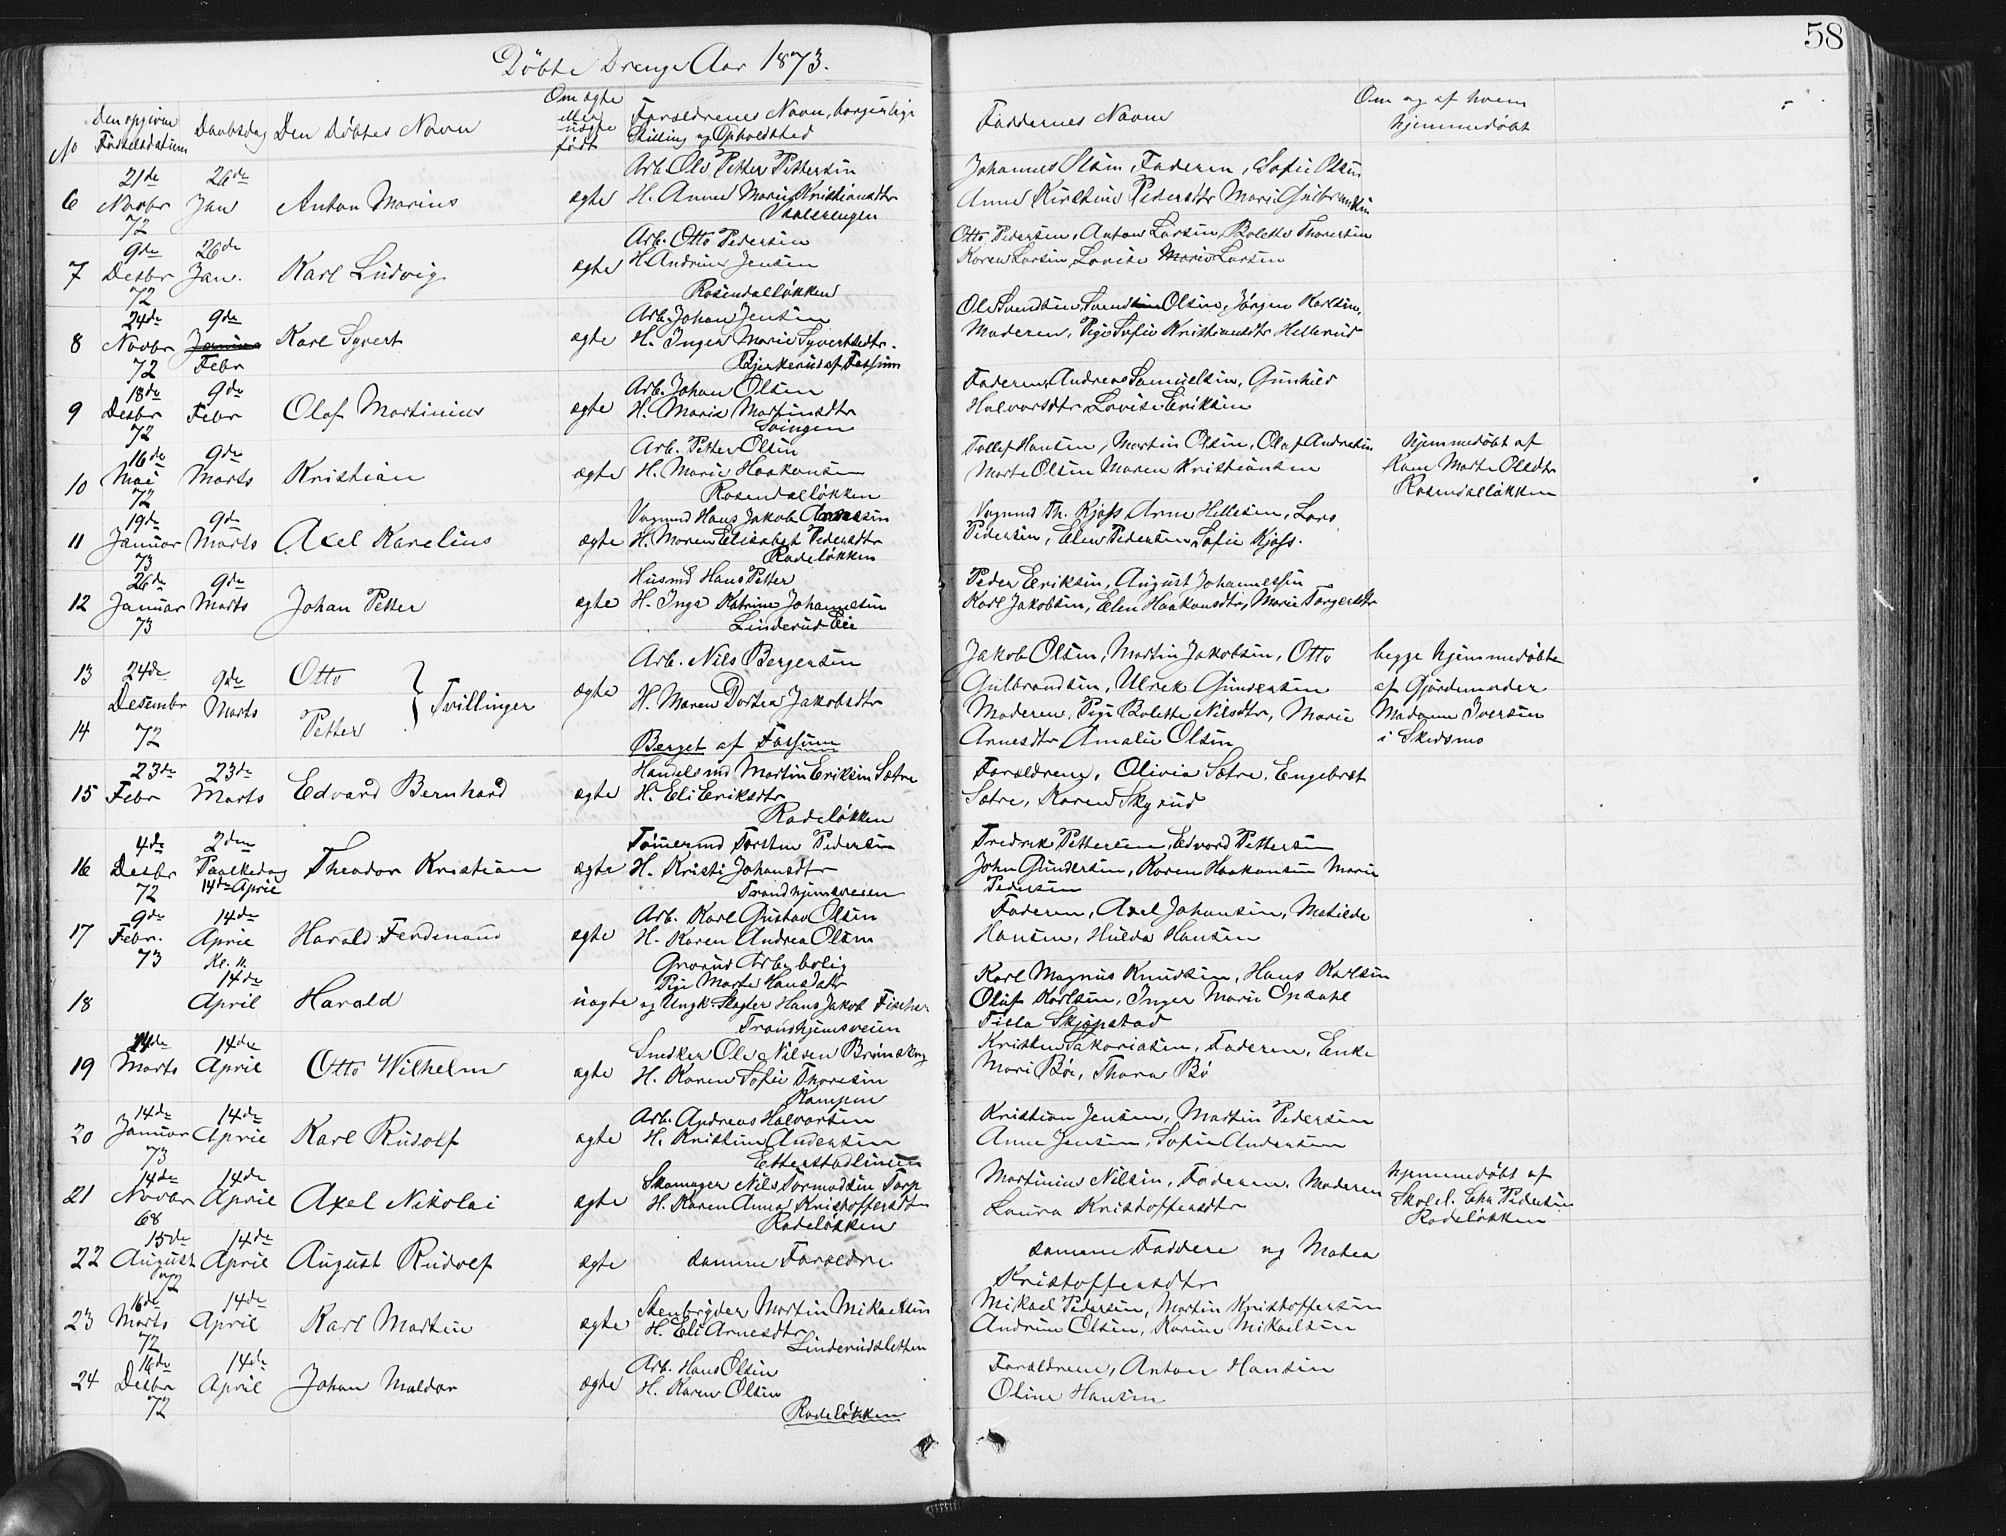 58
Döbte Drenge Aar 1873.
No
Den opgivne Fødselsdatum
Daabsdag
Den Döbtes Navn
Om ægte eller uægte født
Forældrenes Navn, borgerlige Stilling og Opholdsted
Faddernes Navne
Om og af hvem hjemmedøbt
6
21de Novbr 72
26de Jan
Anton Marius
ægte
Arb. Ole Petter Pettersen
H. Anne Marie Kristiansdtr
Vaalerengen
Johannes Olsen, Faderen, Sofie Olsen
Anne Kirstine Pedersdtr Mari Gulbrandsen
7
9de Desbr 72
26de Jan.
Karl Ludvig
ægte
Arb. Otto Pedersen
H. Andrine Jensen
Rosendalløkken
Otto Pedersen, Anton Larsen, Bolette Thoresen
Karen Larsen, Lovise Marie Larsen
8
24de Novbr 72
9de Febr
Karl Syvert
ægte
Arb. Johan Jensen
H. Inger Marie Syvertsdtr.
Bjerkerud af Fossum
Ole Svendsen, Svend Olsen, Jörgen Karlsen,
Moderen, Pige Sofie Kristiansdtr Hellerud
9
18de Desbr 72
9de Febr
Olaf Martinius
ægte
Arb. Johan Olsen
H. Marie Martinsdtr
Svingen
Faderen, Andreas Samuelsen, Gunhild
Halvorsdtr, Lovise Eriksen
10
16de Mai 72
9de Marts
Kristian
ægte
Arb. Petter Olsen
H. Marie Haakonsen
Rosendalløkken
Tollef Hansen, Martin Olsen, Olaf Andresen
Marte Olsen Maren Kristiansen
hjemmedøbt af
Kone Marte Olsdtr
Rosendalløkken
11
19de Januar 73
9de Marts
Axel Karelius
ægte
Vognmd Hans Jakob Arnesen
H. Maren Elisabet Pedersdtr
Rodeløkken
Vognmd Th. Kjøss, Arne Hellesen, Lars
Pedersen, Elen Pedersen, Sofie Kjøss.
12
26de Januar 73
9de Marts
Johan Petter
ægte
Husmd Hans Petter
H. Inga Katrine Johannesen
Linderud Eie
Peder Eriksen, August Johannessen
Karl Jakobsen, Elen Haakonsdtr, Marie Torgersdtr
13
14
24de Desembr 72
9de Marts
Otto
Petter
Tvillinger
ægte
Arb. Nils Bergersen
H. Maren Dortea Jakobsdtr
Berget af Fossum
Jakob Olsen, Martin Jakobsen, Otto
Gulbrandsen, Ulrik Gundersen
Moderen, Pige Bolette Nilsdtr, Marie
Arnesdtr Amalie Olsen
begge hjemmedøbte
af Gjordemoder
Madame Iversen
i Skedsmo
15
23de Febr
23de Marts
Edvard Bernhard
ægte
Handelsmd Martin Eriksen Sætre
H. Eli Eriksdtr
Rodeløkken
Forældrene, Olivia Sætre, Engebret
Sætre, Karen Skyrud
16
4de Desbr 72
2den Paaskedag 14de April
Theodor Kristian
ægte
Tömermd Torsten Pedersen
H. Kristi Johansdtr
Trondhjemsveien
Fredrik Pettersen, Edvard Pettersen
John Gundersen, Karen Haakonsen Marie
Pedersen
17
9de Febr. 73
14de April
Harald Ferdinand
ægte
Arb. Karl Gustav Olsen
H. Karen Andrea Olsen
Grorud Arb. bolig
Faderen, Axel Johansen, Matilde
Hansen, Hulda Hansen
18
Kl. 11. 14de April
Harald
uægte
Pige Marte Hansdtr
og Ungk. Slagter Hans Jakob Fischer
Trondhjemsveien
Karl Magnus Knudsen, Hans Karlsen
Oluf Karlsen, Inger Marie Opdahl
Tilla Skjøpstad
19
Marts
14de April
Otto Wilhelm
ægte
Snedker Ole Nilsen Brønskog
H. Karen Sofie Thoresen
Kampen
Kristen Sakariasen, Faderen, Enke
Mari Bøe, Thora Bö
20
14de Januar 73
14de April
Karl Rudolf
ægte
Arb. Andreas Halvorsen
H. Kristine Andersen
Etterstadlinien
Kristian Jensen, Martin Pedersen
Anne Jensen, Sofie Andersen
21
14de Novbr 68
14de April
Axel Nikolai
ægte
Skomager Nils Tormodsen Torp
H. Karen Anna Kristoffersdtr
Rodeløkken
Martinius Nilsen, Faderen, Moderen
Laura Kristoffersdtr
hjemmedøbt af
Skolel. Chr Pedersen
Rodeløkken
22
15de August 72
14de April
August Rudolf
ægte
samme Forældre
samme Faddere og Matea
Kristoffersdtr
23
16de Marts 72
14de April
Karl Martin
ægte
Stenbryder Martin Mikaelsen
H. Eli Arnesdtr
Linderudsletten
Mikael Pedersen, Martin Kristoffersen
Andrine Olsen, Karine Mikaelsen
24
16de Desbr 72
14de April
Johan Maldor
ægte
Arb. Hans Olsen
H. Karen Olsen
Rodeløkken
Forældrene, Anton Hansen
Oline Hansen